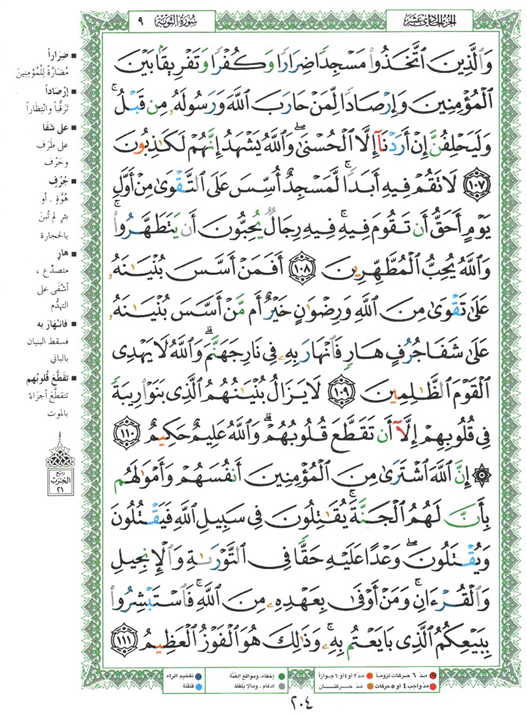 الجزء الحادي عشر
سورة التوبة
٩
وَالَّذِينَ اتَّخَذُوا مَسْجِدًا ضِرَارًا وَكُفْرًا وَتَفْرِيقًا بَيْنَ
الْمُؤْمِنِينَ وَإِرْصَادًا لِّمَنْ حَارَبَ اللَّهَ وَرَسُولَهُ مِن قَبْلُ ۚ
وَلَيَحْلِفُنَّ إِنْ أَرَدْنَا إِلَّا الْحُسْنَىٰ ۖ وَاللَّهُ يَشْهَدُ إِنَّهُمْ لَكَاذِبُونَ
﴿١٠٧﴾ لَا تَقُمْ فِيهِ أَبَدًا ۚ لَّمَسْجِدٌ أُسِّسَ عَلَى التَّقْوَىٰ مِنْ أَوَّلِ
يَوْمٍ أَحَقُّ أَن تَقُومَ فِيهِ ۚ فِيهِ رِجَالٌ يُحِبُّونَ أَن يَتَطَهَّرُوا ۚ
وَاللَّهُ يُحِبُّ الْمُطَّهِّرِينَ ﴿١٠٨﴾ أَفَمَنْ أَسَّسَ بُنْيَانَهُ
عَلَىٰ تَقْوَىٰ مِنَ اللَّهِ وَرِضْوَانٍ خَيْرٌ أَم مَّنْ أَسَّسَ بُنْيَانَهُ
عَلَىٰ شَفَا جُرُفٍ هَارٍ فَانْهَارَ بِهِ فِي نَارِ جَهَنَّمَ ۗ وَاللَّهُ لَا يَهْدِي
الْقَوْمَ الظَّالِمِينَ ﴿١٠٩﴾ لَا يَزَالُ بُنْيَانُهُمُ الَّذِي بَنَوْا رِيبَةً
فِي قُلُوبِهِمْ إِلَّا أَن تَقَطَّعَ قُلُوبُهُمْ ۗ وَاللَّهُ عَلِيمٌ حَكِيمٌ ﴿١١٠﴾
۞ إِنَّ اللَّهَ اشْتَرَىٰ مِنَ الْمُؤْمِنِينَ أَنفُسَهُمْ وَأَمْوَالَهُم
بِأَنَّ لَهُمُ الْجَنَّةَ ۚ يُقَاتِلُونَ فِي سَبِيلِ اللَّهِ فَيَقْتُلُونَ
وَيُقْتَلُونَ ۖ وَعْدًا عَلَيْهِ حَقًّا فِي التَّوْرَاةِ وَالْإِنجِيلِ
وَالْقُرْآنِ ۚ وَمَنْ أَوْفَىٰ بِعَهْدِهِ مِنَ اللَّهِ ۚ فَاسْتَبْشِرُوا
بِبَيْعِكُمُ الَّذِي بَايَعْتُم بِهِ ۚ وَذَٰلِكَ هُوَ الْفَوْزُ الْعَظِيمُ ﴿١١١﴾
■ ضِرَاراً
مُضَارَّةً لِلْمُؤْمِنِينَ
■ إِرْصَاداً
تَرَقُّباً وانْتِظَاراً
■ عَلى شَفَا
على طَرَفِ
وحَرْفِ
■ جُرُفٍ
هُوَّةٍ . أو
بئرٍ لم تُبْنَ
بالحجارة
■ هَارٍ
متصدِّعٍ ،
أشْفَى على
التهدُّم
■ فَانْهَارَ به
فسقط البنيان
بالباني
■ تَقَطَّعَ قُلُوبُهم
تتقطَّعَ أجزاءً
بالموت
ربع
الحزب
٢١
مدّ ٦ حركات لزوماً
مدّ ٢ أو ٤ أو ٦ جوازاً
إخفاء، ومواقع الغُنَّة
تفخيم الراء
مدّ واجب ٤ أو ٥ حركات
مدّ حركتان
ادغام، ومالا يُلفَظ
قلقلة
٢٠٤